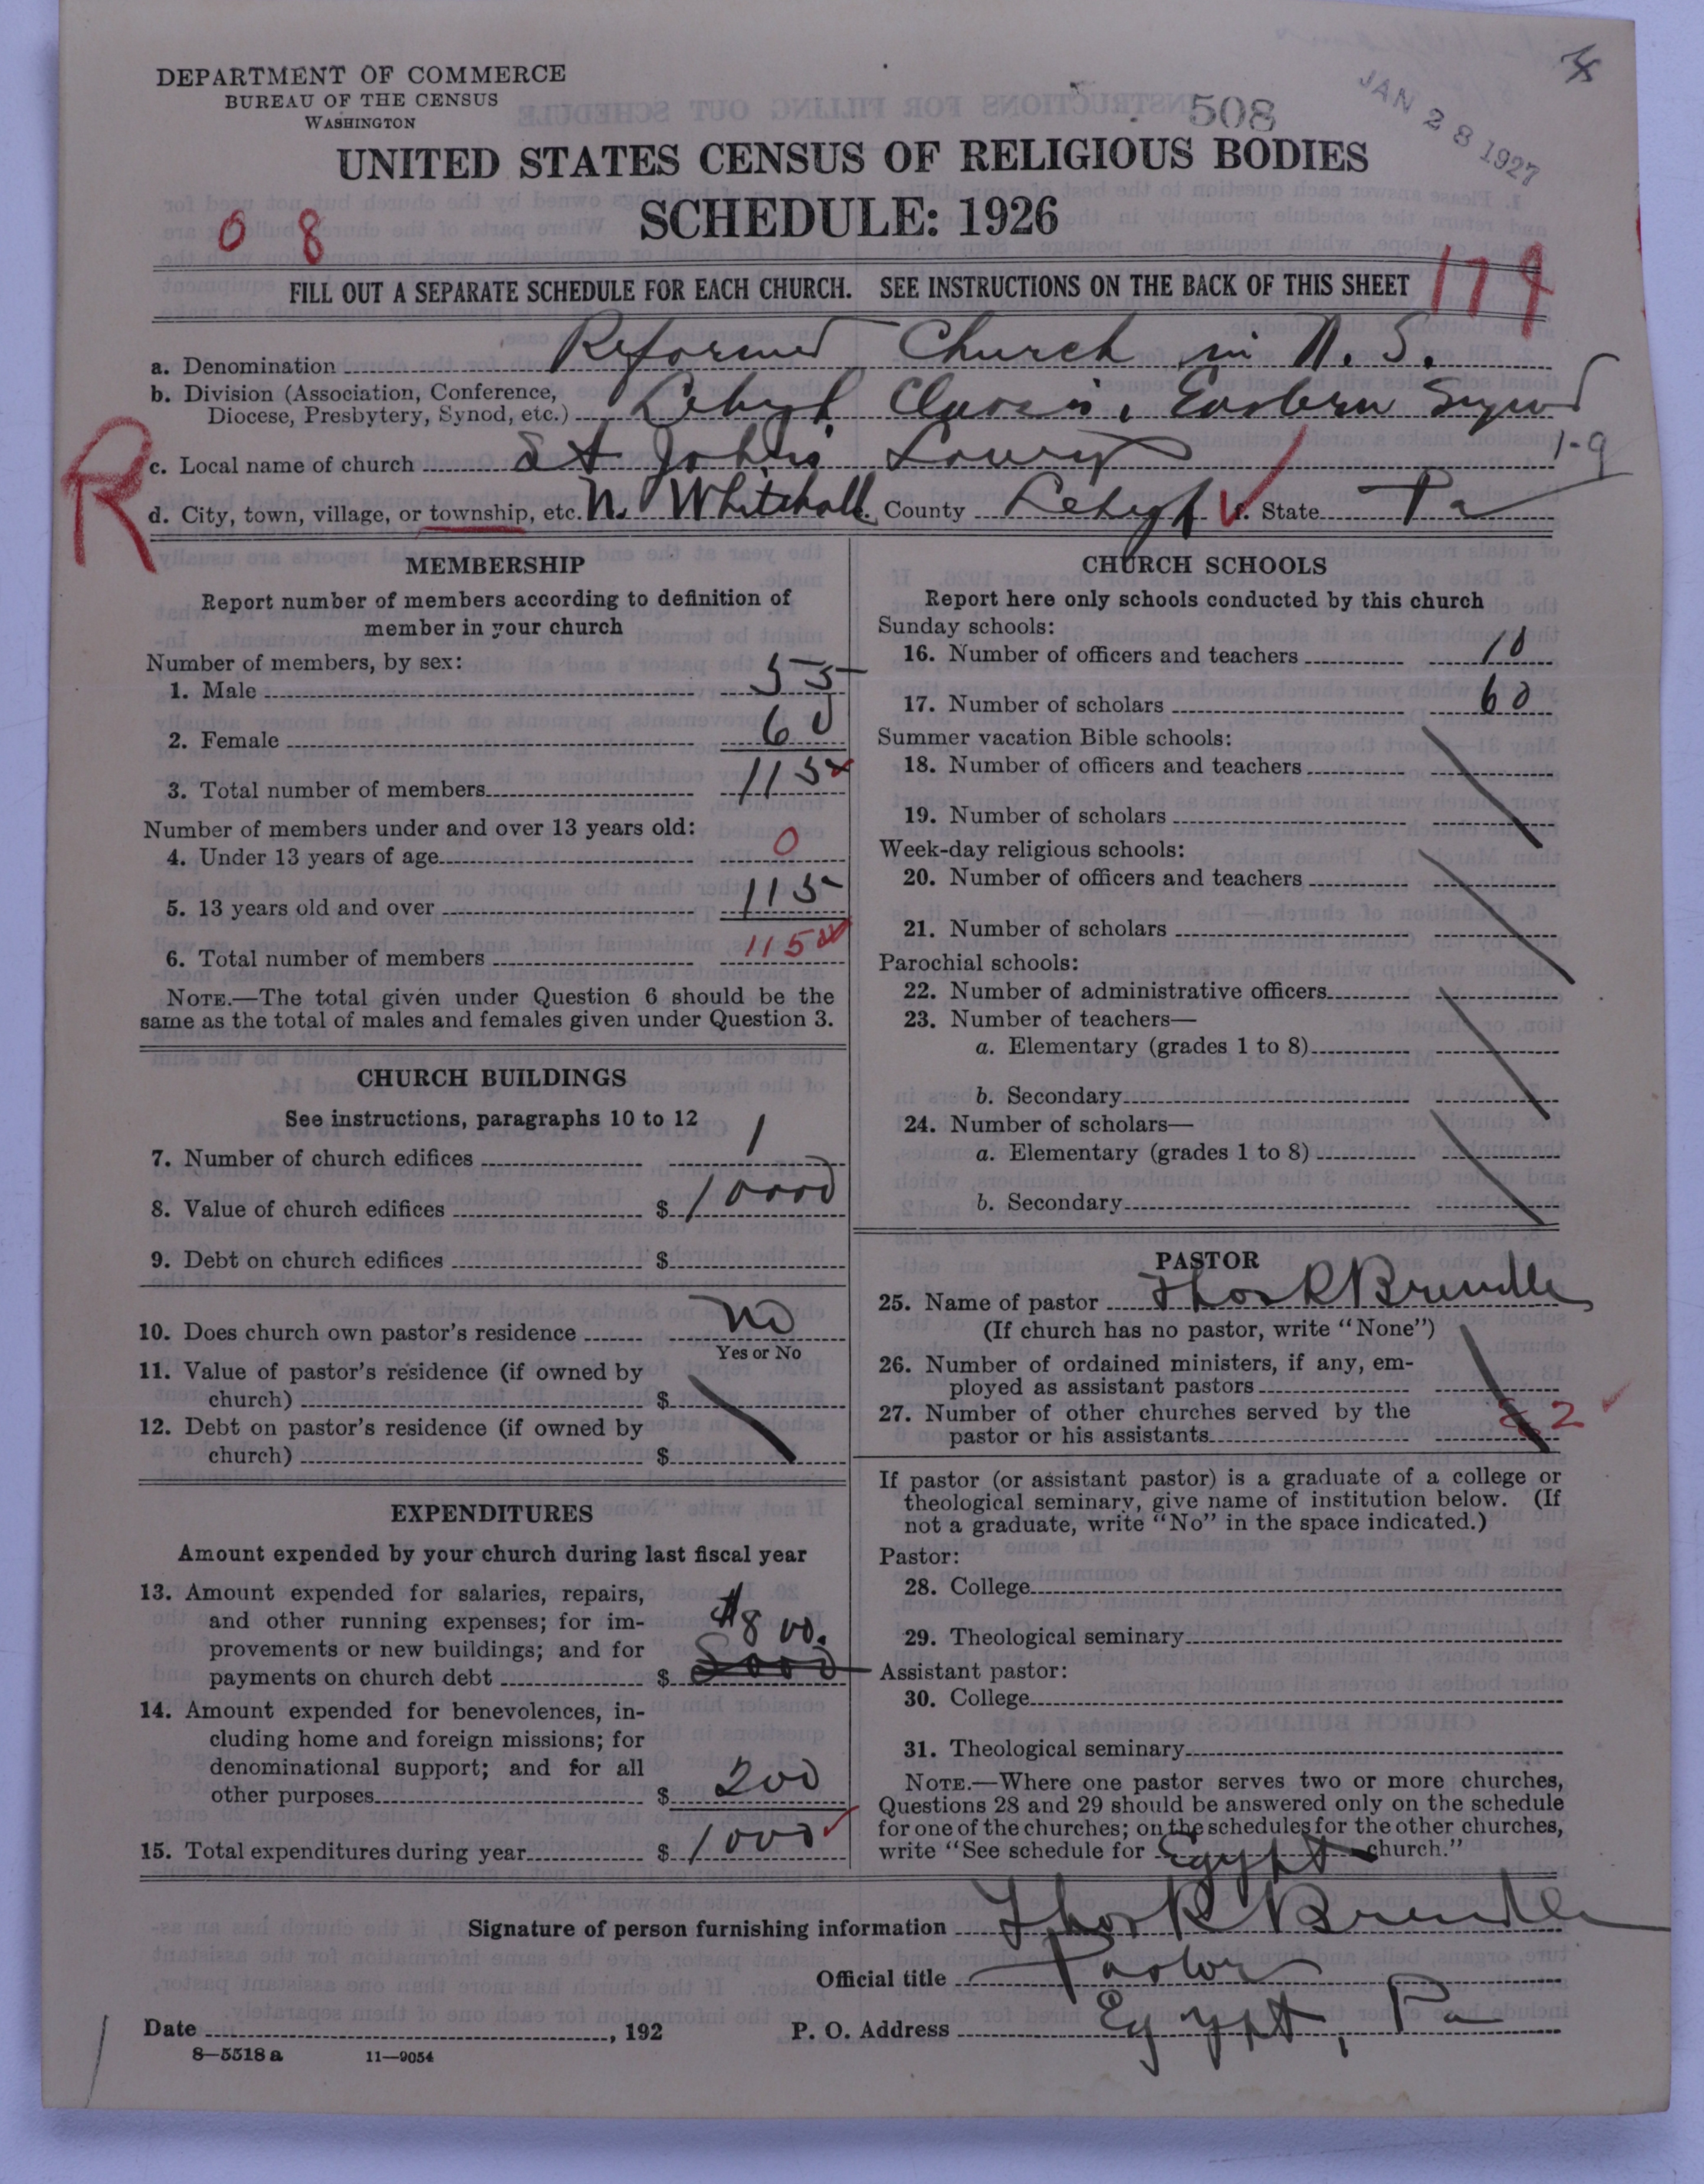 DEPARTMENT OF COMMERCE
BUREAU OF THE CENSUS
WASHINGTON
508
JAN 28 1927
UNITED STATES CENSUS OF RELIGIOUS BODIES
SCHEDULE: 1926
0 8
179
FILL OUT A SEPARATE SCHEDULE FOR EACH CHURCH. SEE INSTRUCTIONS ON THE BACK OF THIS SHEET
a. Denomination Reformed Church in U. S.
b. Division (Association, Conference,
Diocese, Presbytery, Synod, etc.) Lehigh Classis, Eastern Synod
R
c. Local name of church St John's Lowry 1-9
d. City, town, village, or township, etc. N. Whitehall County Lehigh f. State Pa
MEMBERSHIP
Report number of members according to definition of
member in your church
Number of members, by sex:
1. Male 55
2. Female 60
3. Total number of members 115
Number of members under and over 13 years old:
4. Under 13 years of age 0
5. 13 years old and over 115
6. Total number of members 115
NOTE.—The total given under Question 6 should be the
same as the total of males and females given under Question 3.
CHURCH BUILDINGS
See instructions, paragraphs 10 to 12
7. Number of church edifices 1
8. Value of church edifices $ 10000
9. Debt on church edifices $
10. Does church own pastor's residence no
Yes or No
11. Value of pastor's residence (if owned by
church) $
12. Debt on pastor's residence (if owned by
church) $
EXPENDITURES
Amount expended by your church during last fiscal year
13. Amount expended for salaries, repairs,
and other running expenses; for im-
provements or new buildings; and for
payments on church debt $ $800.
14. Amount expended for benevolences, in-
cluding home and foreign missions; for
denominational support; and for all
other purposes $ 200
15. Total expenditures during year $ 1000
CHURCH SCHOOLS
Report here only schools conducted by this church
Sunday schools:
16. Number of officers and teachers 10
17. Number of scholars 60
Summer vacation Bible schools:
18. Number of officers and teachers
19. Number of scholars
Week-day religious schools:
20. Number of officers and teachers
21. Number of scholars
Parochial schools:
22. Number of administrative officers
23. Number of teachers—
a. Elementary (grades 1 to 8)
b. Secondary
24. Number of scholars—
a. Elementary (grades 1 to 8)
b. Secondary
PASTOR
25. Name of pastor Thos R Brendle
(If church has no pastor, write "None")
26. Number of ordained ministers, if any, em-
ployed as assistant pastors
27. Number of other churches served by the
pastor or his assistants 2
If pastor (or assistant pastor) is a graduate of a college or
theological seminary, give name of institution below. (If
not a graduate, write "No" in the space indicated.)
Pastor:
28. College
29. Theological seminary
Assistant pastor:
30. College
31. Theological seminary
NOTE.—Where one pastor serves two or more churches,
Questions 28 and 29 should be answered only on the schedule
for one of the churches; on the schedules for the other churches,
write "See schedule for Egypt church."
Signature of person furnishing information Thos R Brendle
Official title Pastor
Date , 192
P. O. Address Egypt, Pa
8—5518 a 11—9054